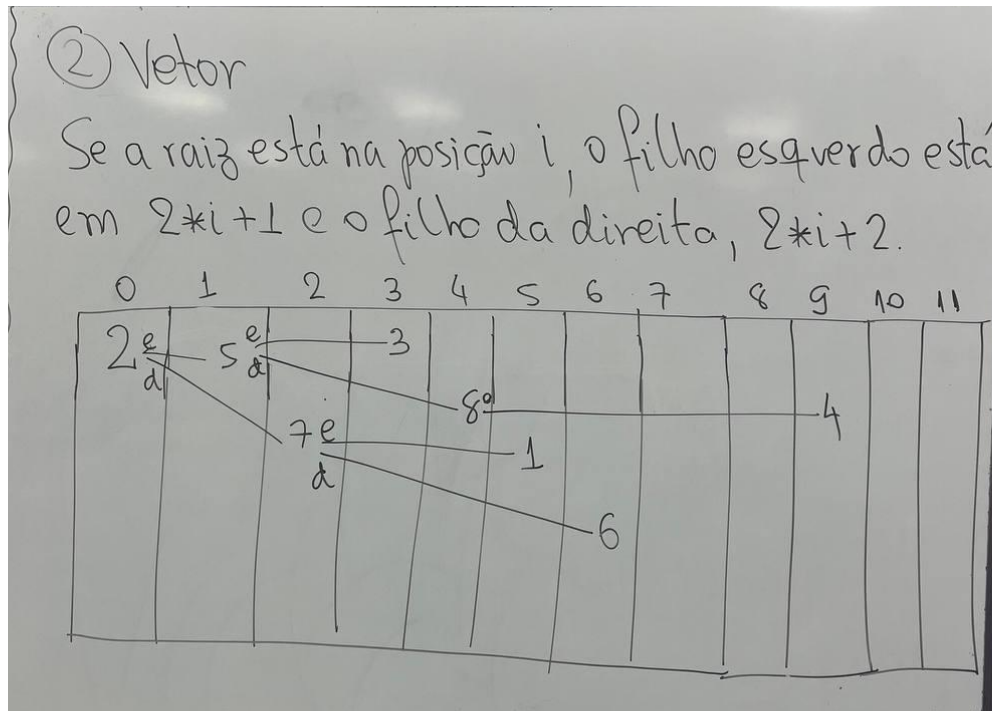 ② Vetor
Se a raiz está na posição i, o filho esquerdo está
em 2*i+1 e o filho da direita, 2*i+2.
0 1 2 3 4 5 6 7 8 9 10 11
2 e 5 e 3
d d
8 e 4
7 e 1
d
6